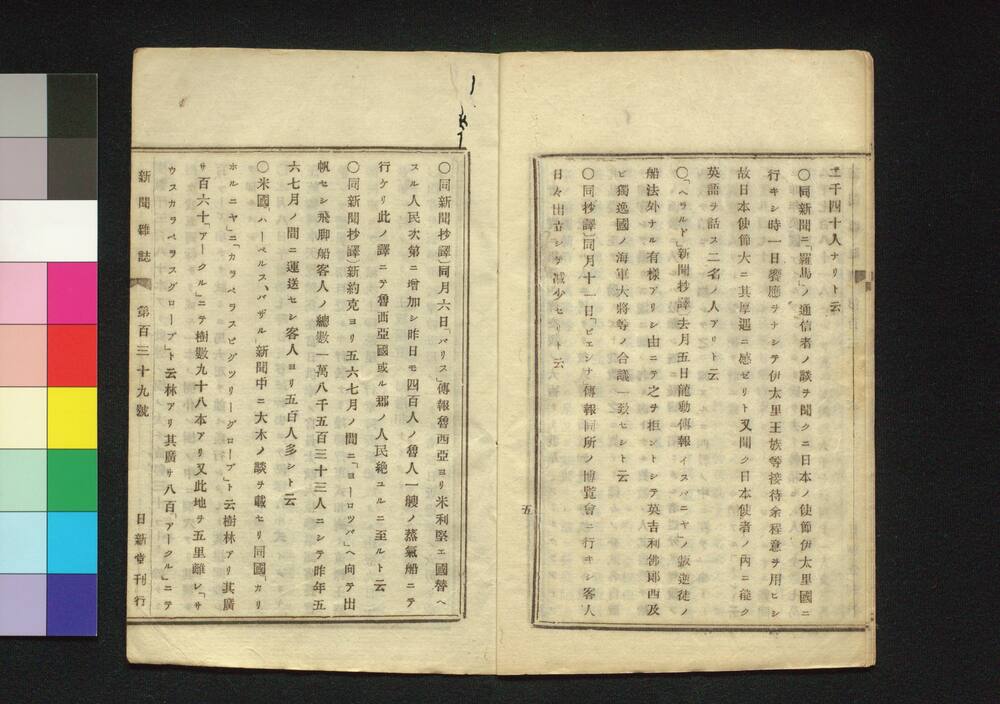 二千四十人ナリト云
〇同新聞ニ「羅馬」ノ通信者ノ談ヲ聞クニ日本ノ使節伊太里國ニ
行キシ時一日饗應ヲナシテ伊太里王族等接待余程意ヲ用ヒシ
故日本使節大ニ其厚遇ニ感ゼリト又聞ク日本使者ノ内ニ能ク
英語ヲ話ス二名ノ人アリト云
〇「ヘラルド」新聞抄譯去月五日龍動傳報イスパニヤ」ノ叛逆徒ノ
船法外ナル有樣アリシ由ニテ之ヲ拒ントシテ英吉利佛郎西及
ビ獨逸國ノ海軍大將等ノ合議一致セシト云
〇同抄譯〕同月十一日「ビエンナ傳報同所ノ博覽會ニ行キシ客人
日々出立シテ減少セリト云
五
〇同新聞抄譯〕同月六日「パリス」傳報魯西亞ヨリ米利堅エ國替ヘ
スル人民次第ニ增加シ昨日モ四百人ノ魯人一艘ノ蒸氣船ニテ
行ケリ此ノ譯ニテ魯西亞國或ル郡ノ人民絶ユルニ至ルト云
〇同新聞抄譯〕新約克ヨリ五六七月ノ間ニ「ヨーロツパ」ヘ向テ出
帆セシ飛脚船客人ノ總數一萬八千五百三十三人ニシテ昨年五
六七月ノ間ニ運送セシ客人ヨリ五百人多シト云
〇米國「ハーペルス、バザル」新聞中ニ大木ノ談ヲ載セリ同國「カリ
ホルニヤ」ニ「カラベラスビグツリーグローブ」ト云樹林アリ其廣
サ百六十「アークル」ニテ樹數九十八本アリ又此地ヲ五里離レ「サ
ウスカラベラスグローブ」ト云林アリ其廣サ八百「アークル」ニテ
新聞雜誌 第百三十九號 日新堂刊行